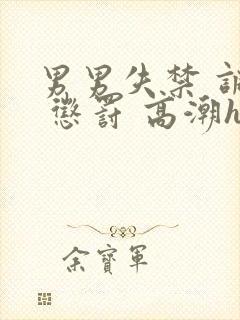 男男失禁 調
懲罰 高潮h
余寶軍